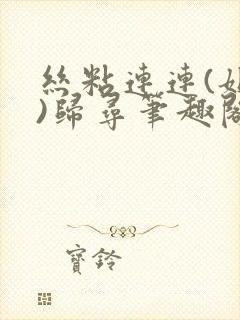 絲粘連連(
)歸尋筆趣閣
寶鈴